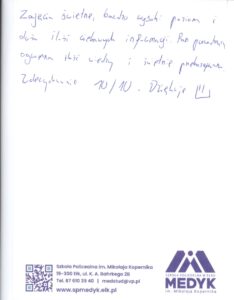 Zajęcia świetne, bardzo wysoki poziom i
duża ilość ciekawych informacji. Pan prowadzący
ogromna ilość wiedzy i świetnie
Zdecydowanie 10/10. Dziękuję !!!
Szkoła Policealna im. Mikołaja Kopernika
19-300 Ełk, ul. K. A. Bahrkego 2B
Tel. 87 610 35 40 | medstud@vp.pl
www.spmedyk.elk.pl
SZKOŁA POLICEALNA W EŁKU
MEDYK
im. Mikołaja Kopernika